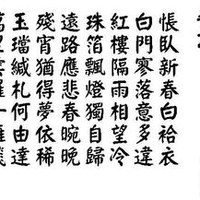 悵臥新春白袷衣
白門寥落意多違
紅樓隔雨相望冷
珠箔飄燈獨自歸
遠路應悲春晼晚
殘宵猶得夢依稀
玉璫緘札何由達